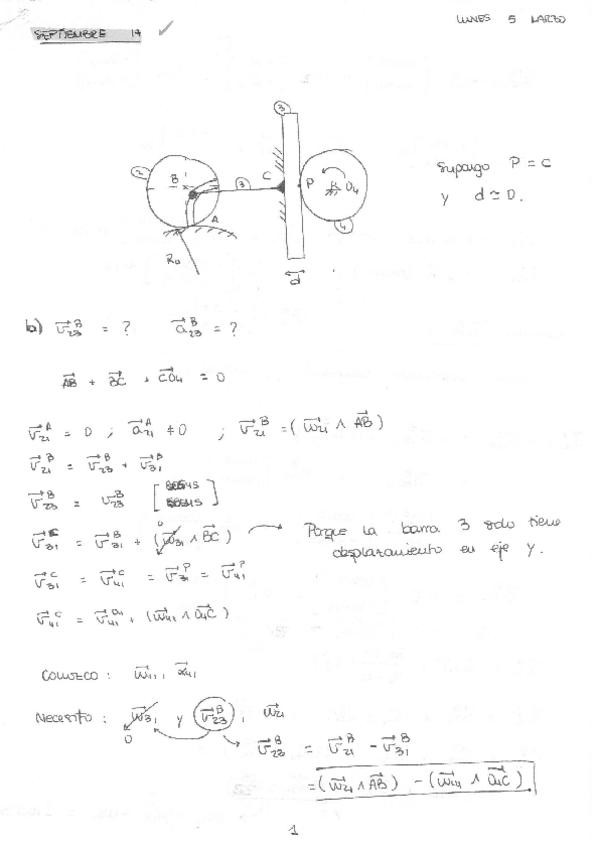 LUNES 5 MARZO
SEPTIEMBRE 14 ✓
3
2 B 3 C P O₄
A 4
R₀
d
Supongo P = C
y d ≃ 0.
b) v⃗₂₃ᴮ = ? a⃗₂₃ᴮ = ?
A⃗B + B⃗C + C⃗O₄ = 0
v⃗₂₁ᴬ = 0 ; a⃗₂₁ᴬ ≠ 0 ; v⃗₂₁ᴮ = (ω⃗₂₁ ∧ A⃗B)
v⃗₂₁ᴮ = v⃗₂₃ᴮ + v⃗₃₁ᴮ
v⃗₂₃ᴮ = v₂₃ᴮ
v⃗₃₁ᶜ = v⃗₃₁ᴮ + (ω⃗₃₁ ∧ B⃗C) 0 → Porque la barra 3 solo tiene
desplazamiento en eje y.
v⃗₃₁ᶜ = v⃗₄₁ᶜ = v⃗₃₁ᴾ = v⃗₄₁ᴾ
v⃗₄₁ᶜ = v⃗₄₁ᴼ⁴ + (ω⃗₄₁ ∧ O⃗₄C)
CONOZCO : ω⃗₄₁, α⃗₄₁
NECESITO : ω⃗₃₁ y v⃗₂₃ᴮ, ω⃗₂₁
0 v⃗₂₃ᴮ = v⃗₂₁ᴮ - v⃗₃₁ᴮ
= (ω⃗₂₁ ∧ A⃗B) - (ω⃗₄₁ ∧ O⃗₄C)
1